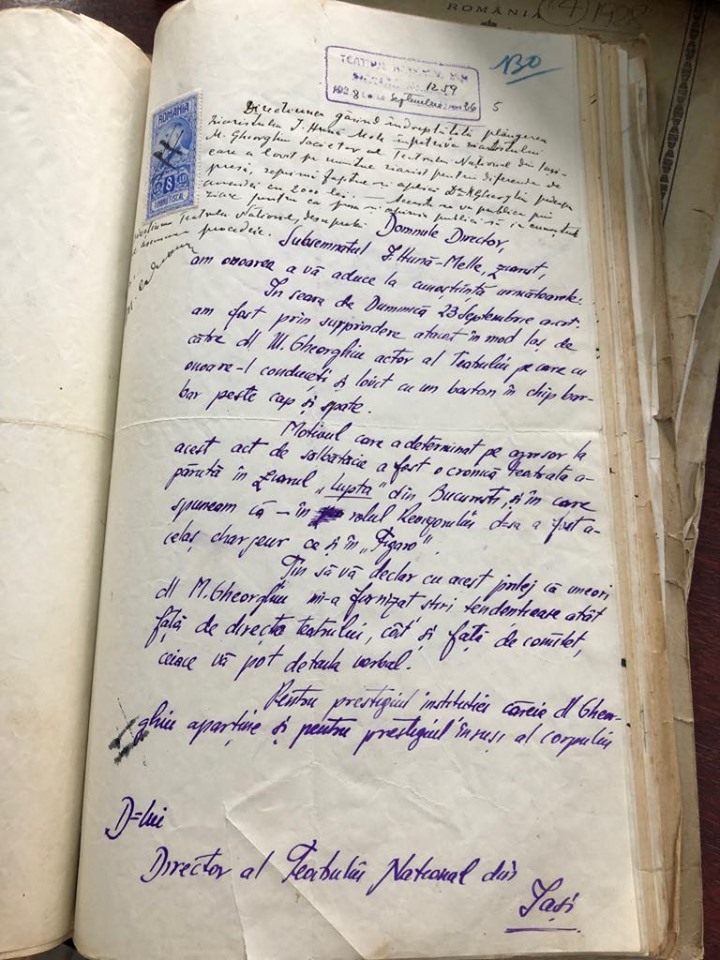 ROMÂNIA
1928
130
TEATRUL NAȚIONAL DIN
1259
1928 Luna Septembrie 26
5
ROMANIA
TIMBRU FISCAL
Direcțiunea găsind îndreptățită plângerea
ziaristului I. Hună Melle împotriva
M. Gheorghiu Societar al Teatrului Național din Iași
care a lovit pe numitul ziarist pentru diferende de
presă, reprimă faptul și aplică Dlui M Gheorghiu pedeapsa
amendei cu 2000 lei. — Aceasta se va publica prin
ziare pentru ca și opinia publică să ia cunoștință
Teatrului Național, desaprobă
procedeie.
Domnule Director,
Subsemnatul I. Hună-Melle, ziarist,
am onoarea a vă aduce la cunoștință următoarele:
În seara de Duminică 23 Septembrie a. crt.
am fost prin surprindere atacat în mod laș de
către dl M. Gheorghiu actor al Teatrului pe care cu
onoare-l conduceți și lovit cu un baston în chip bar-
bar peste cap și spate.
Motivul care a determinat pe agresor la
acest act de sălbătăcie a fost o cronică teatrală a-
părută în ziarul „Lupta" din București, și în care
spuneam că — în rolul d-sa a fost a-
celaș chargeur ca și în „Figaro".
Țin să vă declar cu acest prilej că uneori
dl M. Gheorghiu mi-a furnizat știri tendențioase atât
față de direcția teatrului, cât și față de comitet,
ceiace vă pot detaila verbal.
Pentru prestigiul instituției căreia dl Gheor-
ghiu aparține și pentru prestigiul însuși al corpului
D=lui
Director al Teatrului Național din
Iași